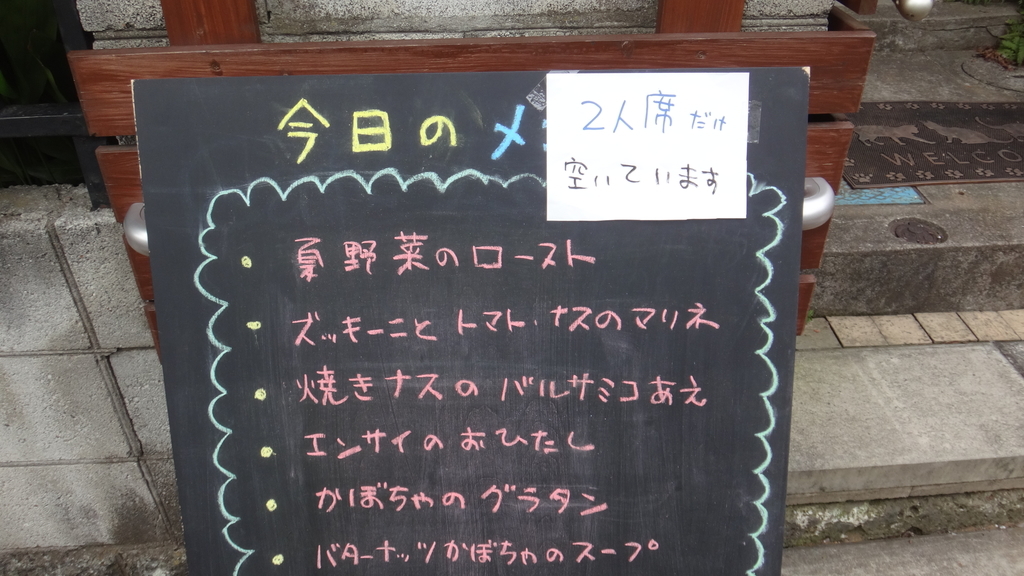 今日のメ
2人席だけ
空いています
・夏野菜のロースト
・ズッキーニとトマト・ナスのマリネ
・焼きナスのバルサミコあえ
・エンサイのおひたし
・かぼちゃのグラタン
・バターナッツかぼちゃのスープ
WELCO